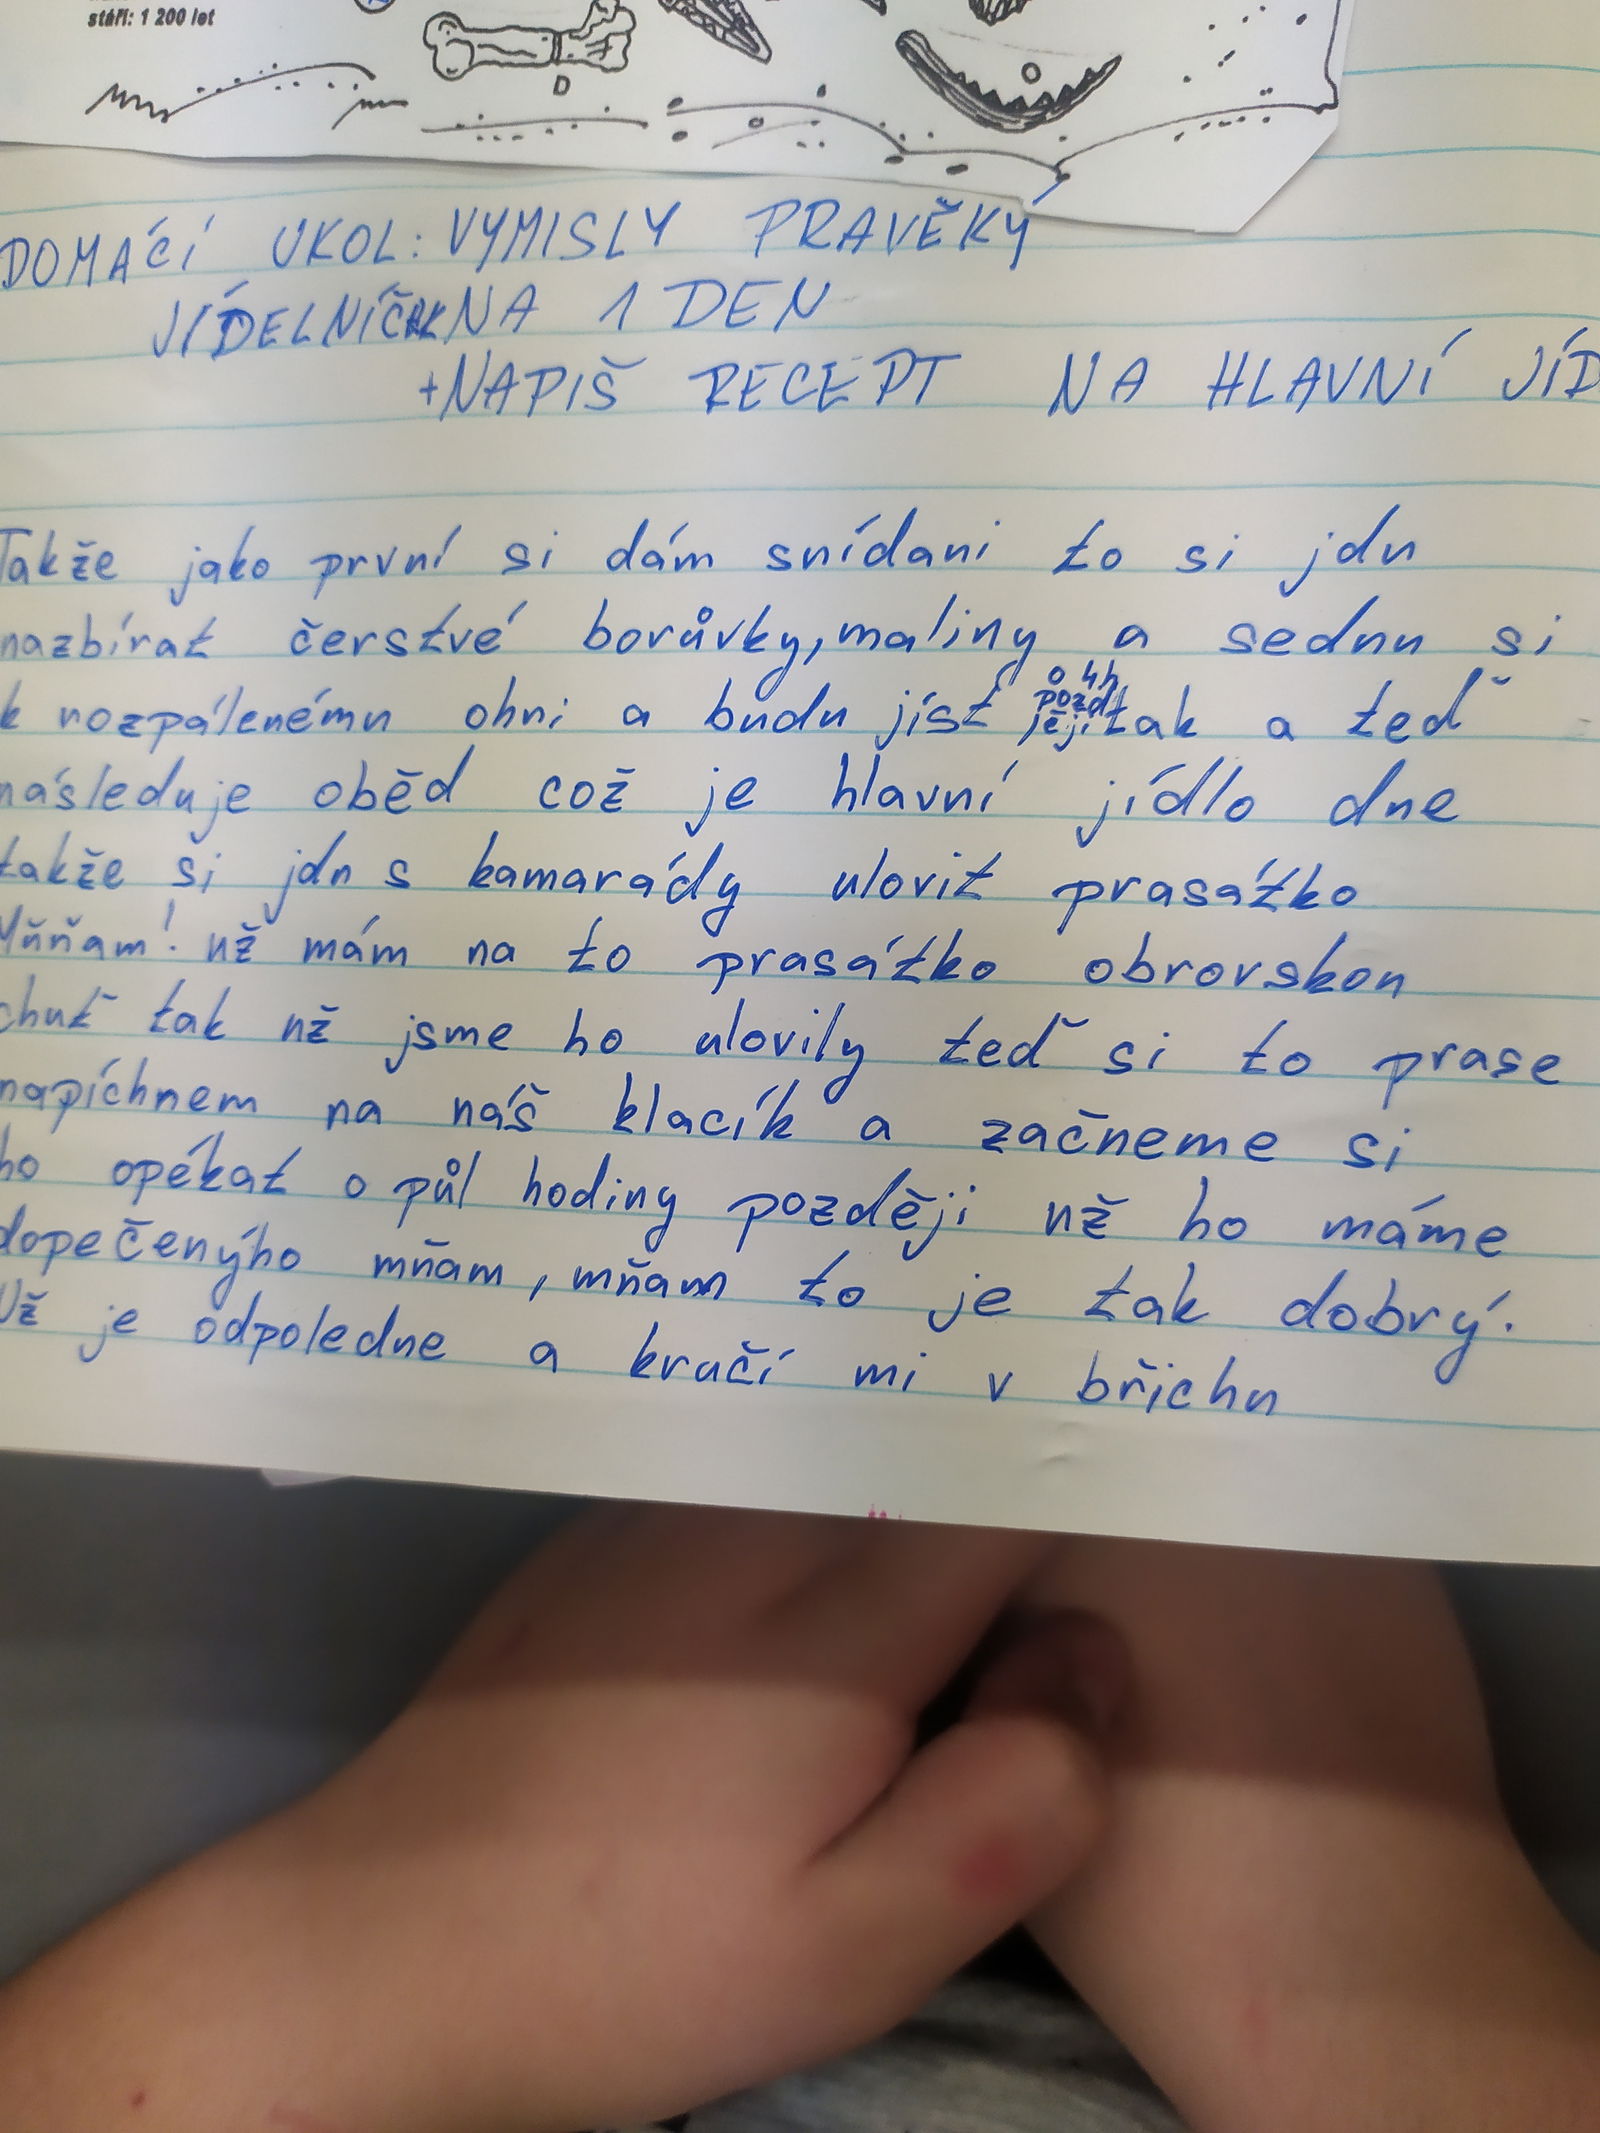 stáří: 1 200 let
D
DOMÁCÍ UKOL: VYMISLY PRAVĚKÝ
JÍDELNÍČEK NA 1 DEN
+NAPIŠ RECEPT NA HLAVNÍ JÍD
Takže jako první si dám snídani to si jdu
nazbírat čerstvé borůvky, maliny a sednu si
k rozpálenému ohni a budu jíst o 4h později tak a teď
následuje oběd což je hlavní jídlo dne
takže si jdu s kamarády ulovit prasátko
Mňňam! už mám na to prasátko obrovskou
chuť tak už jsme ho ulovily teď si to prase
napíchnem na náš klacík a začneme si
ho opékat o půl hodiny později už ho máme
dopečenýho mňam, mňam to je tak dobrý.
Už je odpoledne a kručí mi v břichu